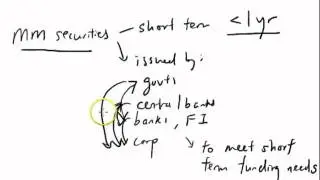 MM securities → short term <1yr
→ issued by:
govts
central banks
banks, FI
corp → to meet short
term funding needs